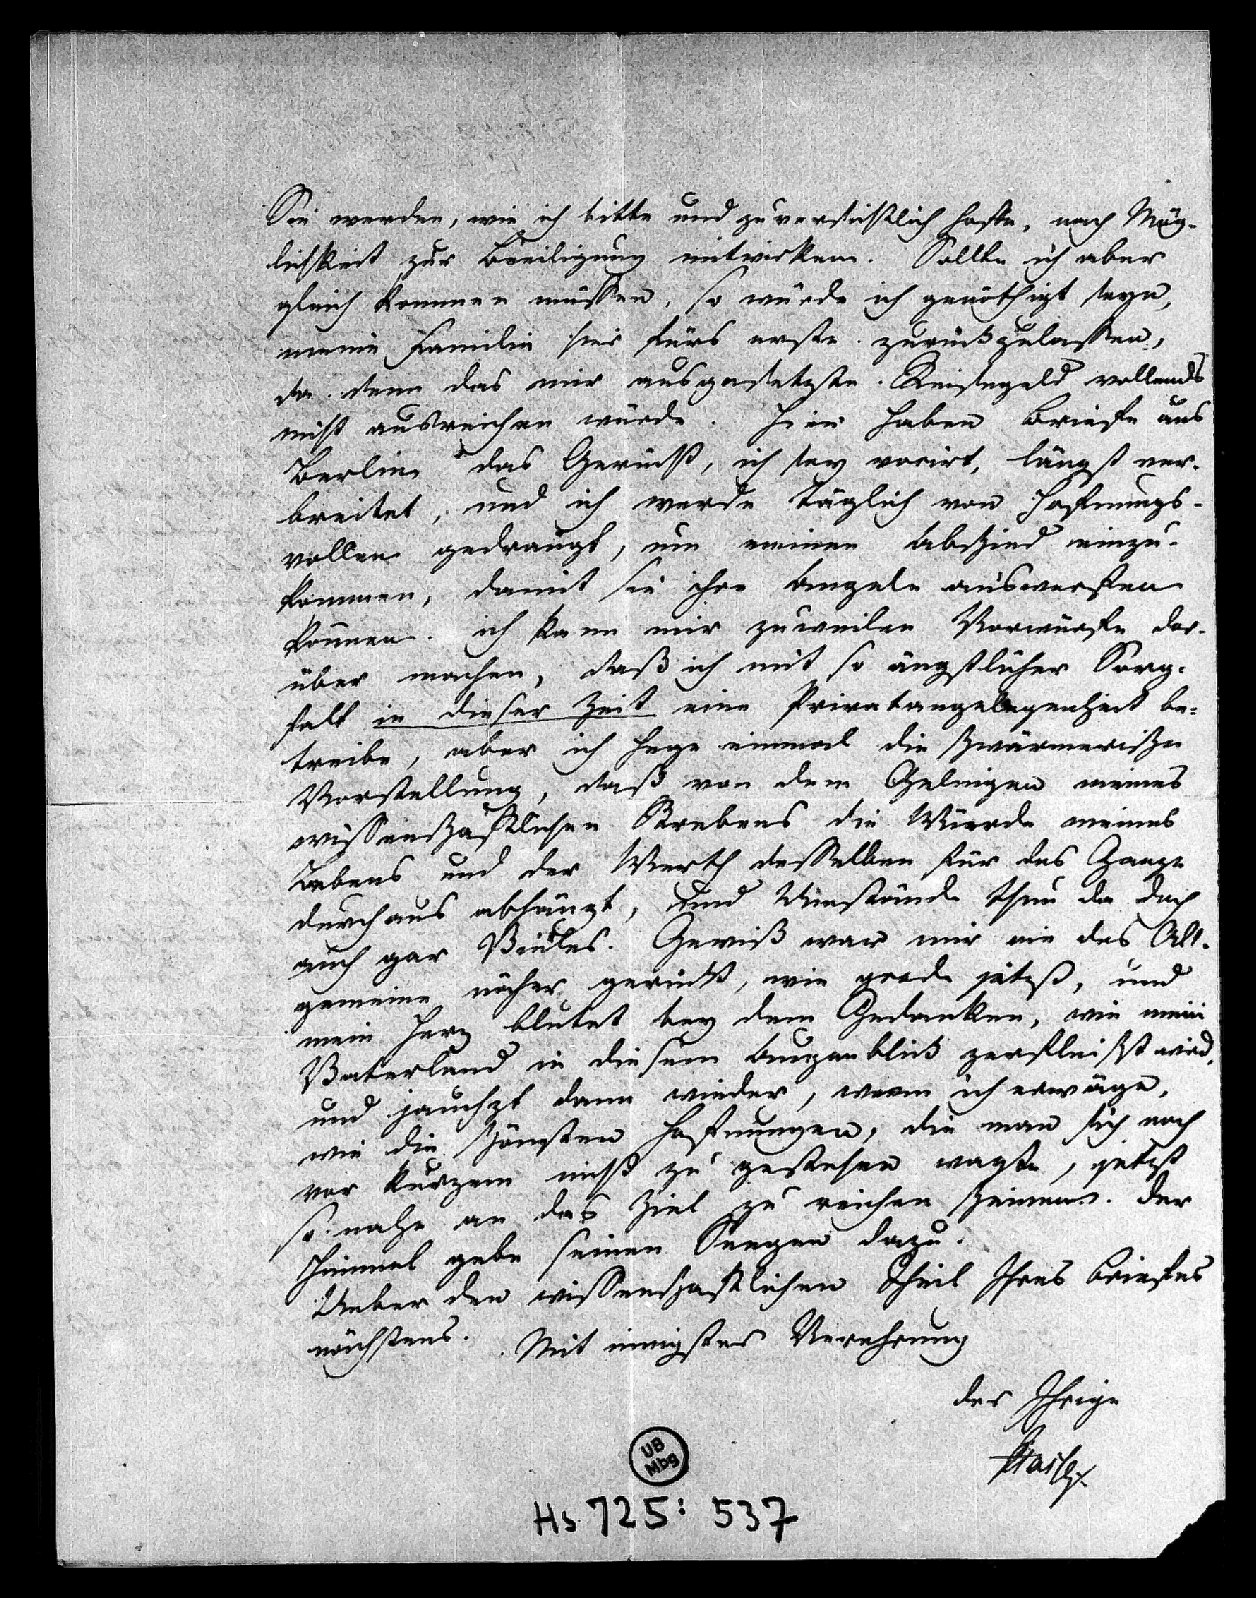 Sie werden, wie ich bitte und zuversichtlich hoffe, nach Mög-
lichkeit zur Beeiligung mitwirken. Sollte ich aber
gleich kommen müssen, so würde ich genöthigt seyn,
meine Familie hier fürs erste zurückzulassen,
da denn das mir ausgesetzte Reisegeld vollends
nicht ausreichen würde. Hier haben Briefe aus
Berlin das Gerücht, ich sey vocirt, längst ver-
breitet, und ich werde täglich von Hoffnungs-
vollen gedrängt, um meinen Abschied einzu-
kommen, damit sie ihre Angeln auswerfen
können. ich kann mir zuweilen Vorwürfe dar-
über machen, daß ich mit so ängstlicher Sorg-
falt in dieser Zeit eine Privatangelegenheit be-
treibe, aber ich hege einmal die schwärmerische
Vorstellung, daß von dem Gelingen meines
wissenschaftlichen Strebens die Würde meines
Lebens und der Werth desselben für das Ganze
durchaus abhängt, und Umstände thun da doch
auch gar Vieles. Gewiß war mir nie das All-
gemeine näher gerückt, wie grade jetzt, und
mein Herz blutet bey dem Gedanken, wie mein
Vaterland in diesem Augenblick zerfleischt wird,
und jauchzt dann wieder, wenn ich erwäge,
wie die schönsten Hoffnungen, die man sich noch
vor kurzem nicht zu gestehen wagte, jetzt
so nahe an das Ziel zu reichen scheinen. Der
Himmel gebe seinen Seegen dazu.
Ueber den wissenschaftlichen Theil Ihres Briefes
nächstens. Mit innigster Verehrung
der Ihrige
UB
Mbg
Hs 725: 537